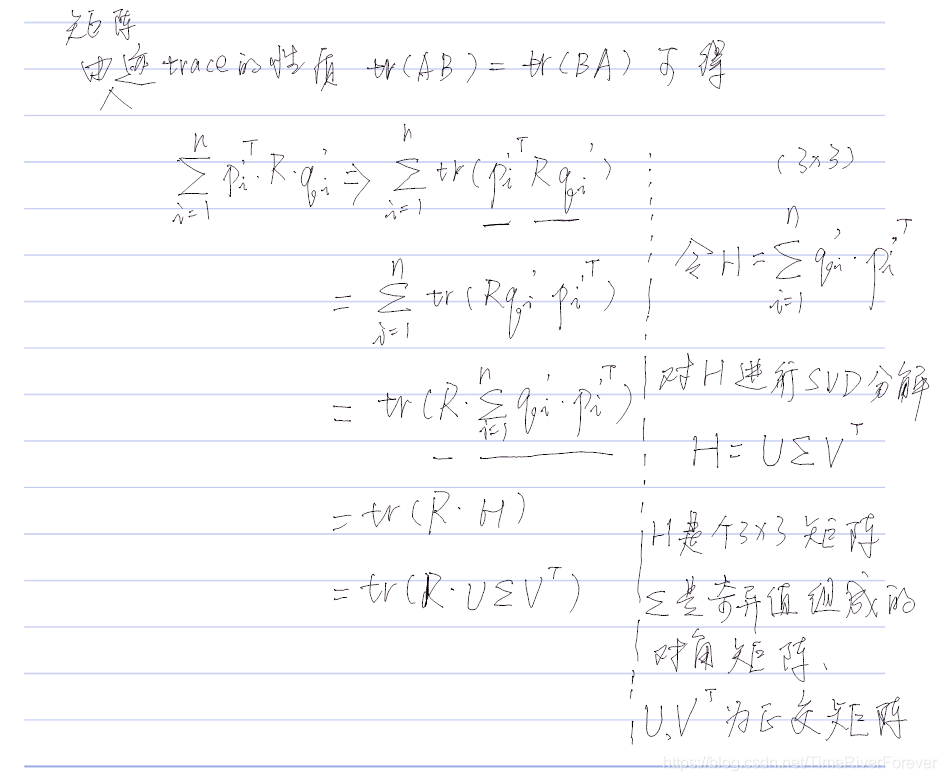 矩阵
由迹trace的性质 tr(AB) = tr(BA) 可得
∑_{i=1}^{n} p_i'^T · R · q_i' ⇒ ∑_{i=1}^{n} tr(p_i'^T R q_i')
= ∑_{i=1}^{n} tr(R q_i' p_i'^T)
= tr(R · ∑_{i=1}^{n} q_i' · p_i'^T)
= tr(R · H)
= tr(R · U Σ V^T)
(3×3)
令 H = ∑_{i=1}^{n} q_i' · p_i'^T
对H进行SVD分解
H = U Σ V^T
H是个3×3矩阵
Σ是奇异值组成的
对角矩阵、
U,V^T为正交矩阵
https://blog.csdn.net/TimeRiverForever